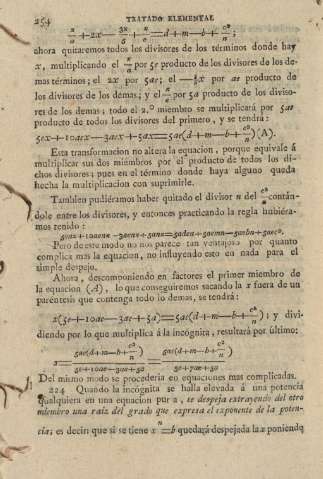 254 TRATADO ELEMENTAL
x/a + 2x — 3x/5 + x/c = d + m — b + c²/n;
ahora quitaremos todos los divisores de los términos donde hay
x, multiplicando el x/a por 5c producto de los divisores de los de-
mas términos; el 2x por 5ac; el — 3/5x por ac producto de
los divisores de los demas; y el x/c por 5a producto de los diviso-
res de los demas; todo el 2.º miembro se multiplicará por 5ac
producto de todos los divisores del primero, y se tendrá:
5cx+10acx—3acx+5ax=5ac(d+m—b+c²/n)(A).
Esta transformacion no altera la equacion, porque equivale á
multiplicar sus dos miembros por el producto de todos los di-
chos divisores; pues en el término donde haya alguno queda
hecha la multiplicacion con suprimirle.
Tambien pudiéramos haber quitado el divisor n del c²/n contán-
dole entre los divisores, y entonces practicando la regla hubiéra-
mos tenido:
Pero de este modo no nos parece tan ventajoso por quanto
complica mas la equacion, no influyendo esto en nada para el
simple despejo.
Ahora, descomponiendo en factores el primer miembro de
la equacion (A), lo que conseguiremos sacando la x fuera de un
paréntesis que contenga todo lo demas, se tendrá:
x(5c+10ac—3ac+5a)=5ac(d+m—b+c²/n); y divi-
diendo por lo que multiplica á la incógnita, resultará por último:
x= 5ac(d+m—b+c²/n) / 5c+10ac—3ac+5a = 5ac(d+m—b+c²/n) / 5c+7ac+5a
Del mismo modo se procederia en equaciones mas complicadas.
224 Quando la incógnita se halla elevada á una potencia
qualquiera en una equacion pura, se despeja extrayendo del otro
miembro una raiz del grado que expresa el exponente de la poten-
cia; es decir que si se tiene xⁿ=b quedará despejada la x poniendo